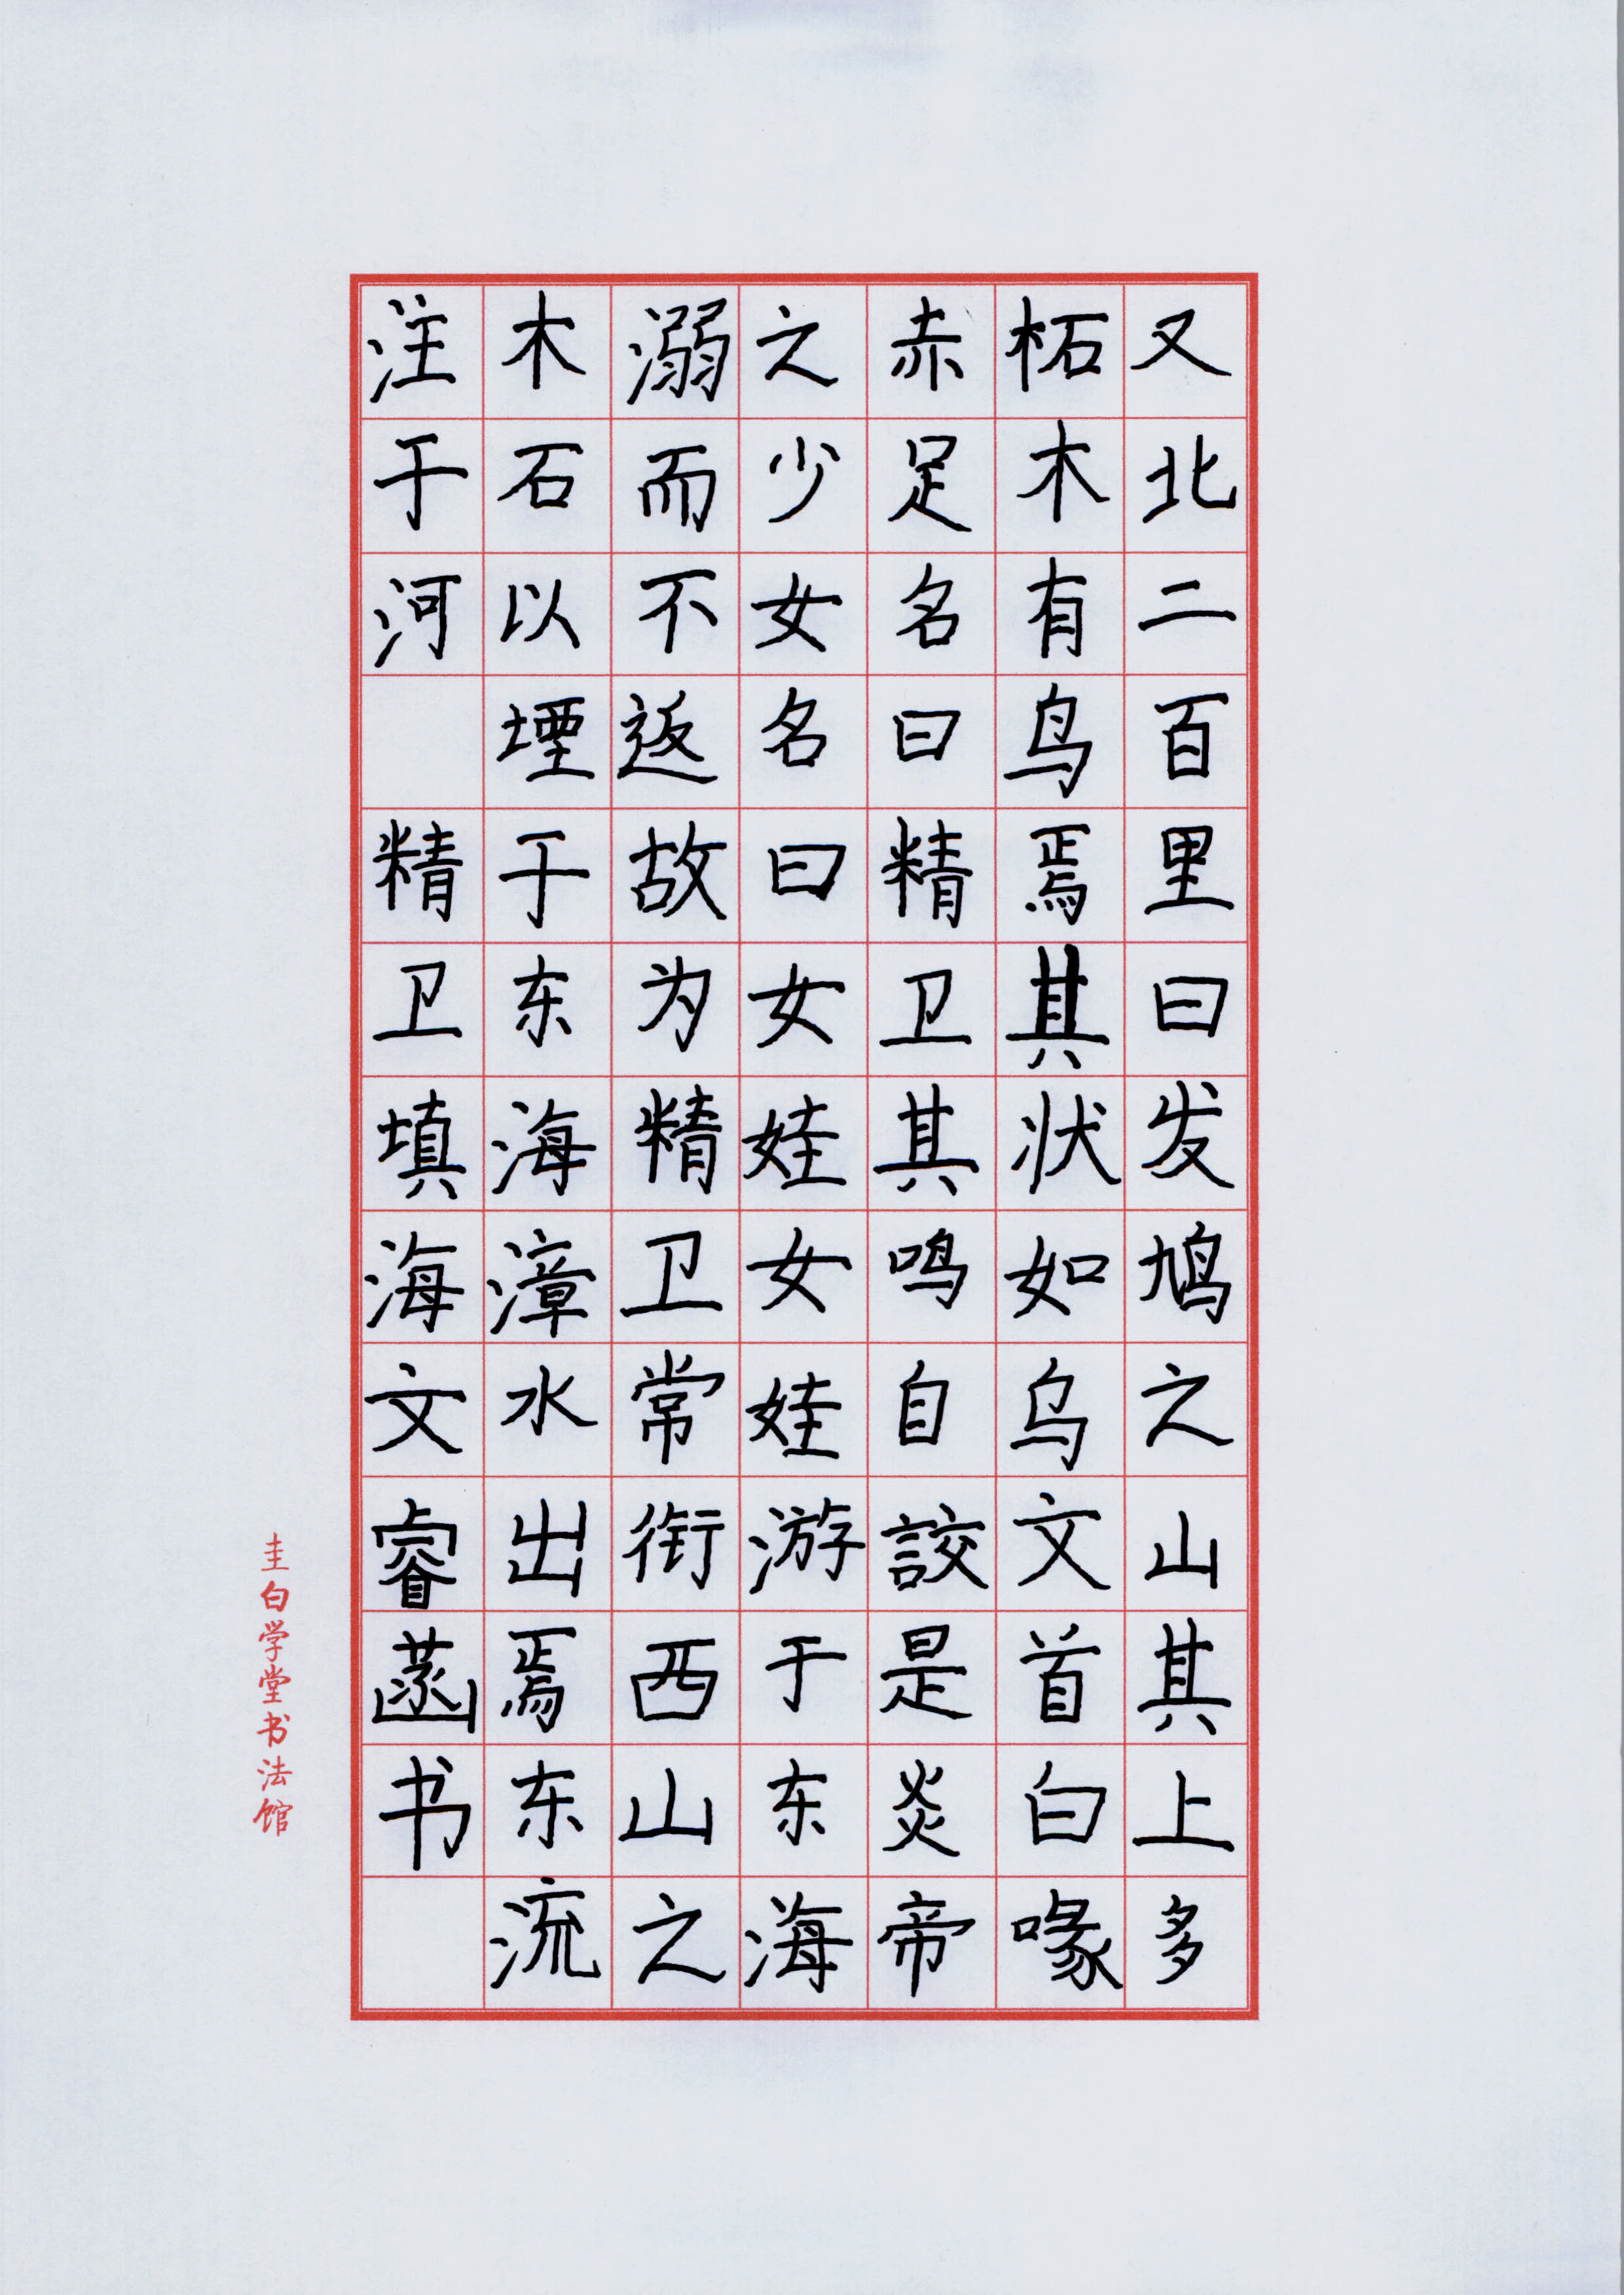 又北二百里曰发鸠之山其上多
柘木有鸟焉其状如乌文首白喙
赤足名曰精卫其鸣自詨是炎帝
之少女名曰女娃女娃游于东海
溺而不返故为精卫常衔西山之
木石以堙于东海漳水出焉东流
注于河 精卫填海文睿菡书
圭白学堂书法馆